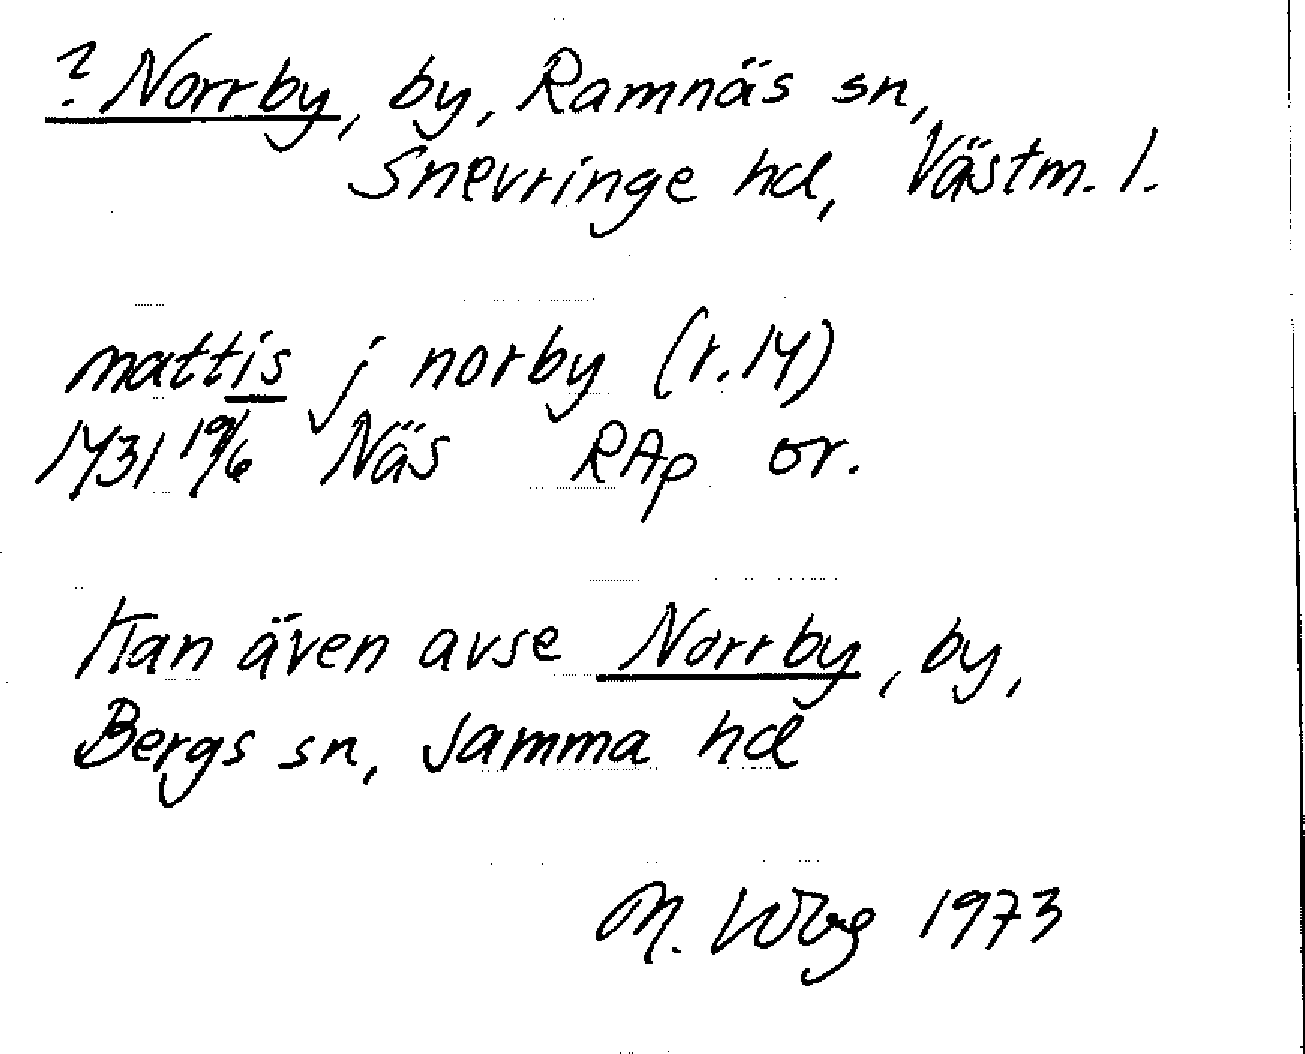 ? Norrby, by, Ramnäs sn,
Snevringe hd, Västm. l.
mattis j norby (r.14)
1431 19/6 Näs RAp or.
Kan även avse Norrby, by,
Bergs sn, samma hd
M. Wbg 1973